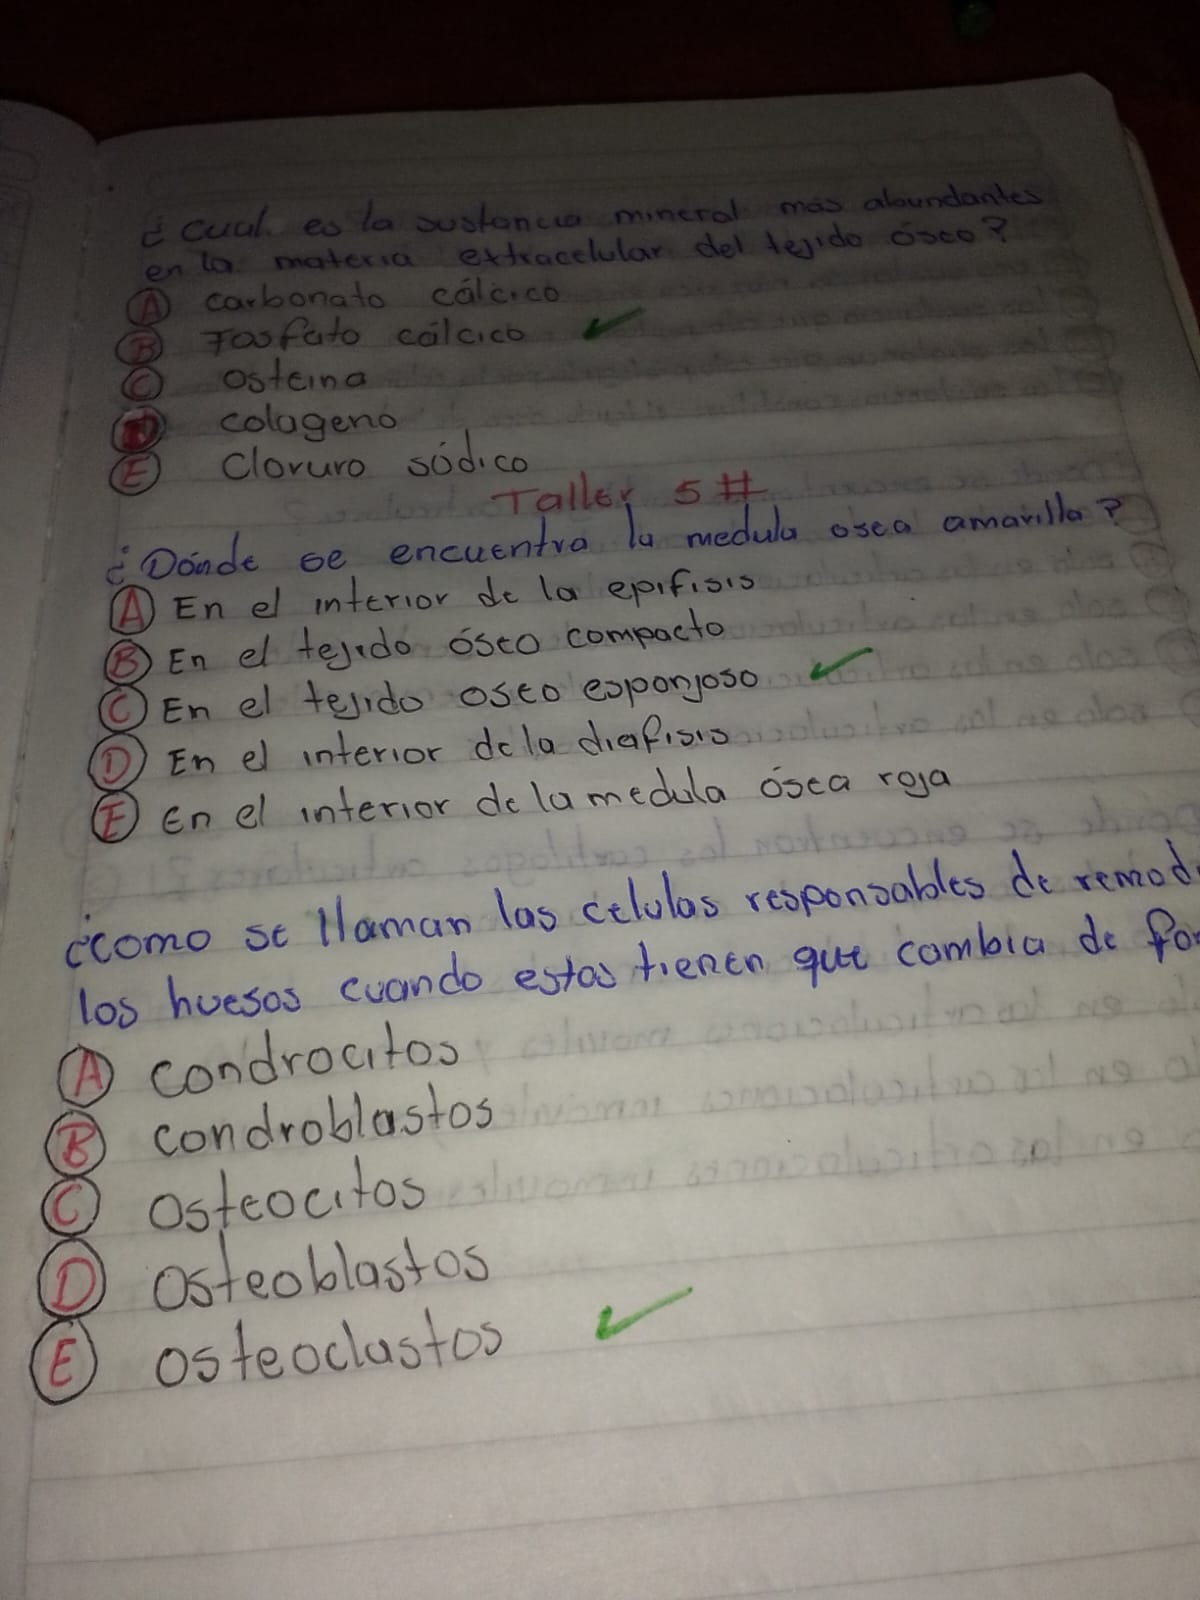 ¿cual es la sustancia mineral más abundantes
en la materia extracelular del tejido óseo?
A carbonato cálcico
B Fosfato cálcico ✓
C osteina
D colageno
E Cloruro södico
Taller 5 #
¿Dónde se encuentra la medula osea amarilla?
A En el interior de la epifisis
B En el tejido óseo compacto
C En el tejido oseo esponjoso ✓
D En el interior de la diafisis
E En el interior de la medula ósea roja
¿como se llaman las celulas responsables de remod
los huesos cuando estos tienen que cambia de fo
A condrocitos
B condroblastos
C osteocitos
D osteoblastos
E osteoclastos ✓